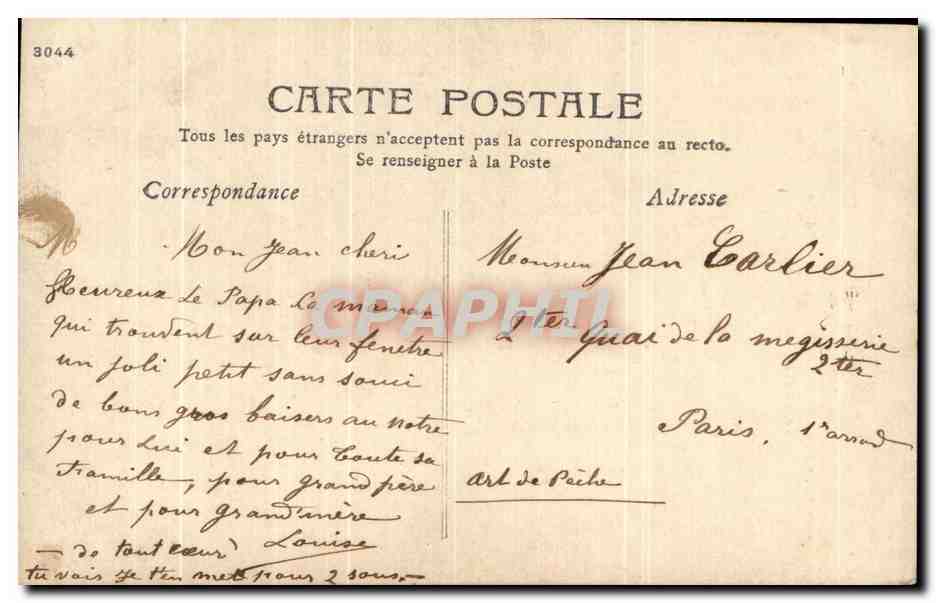 3044
CARTE POSTALE
Tous les pays étrangers n'acceptent pas la correspondance au recto.
Se renseigner à la Poste
Correspondance
Mon Jean cheri
Heureux Le Papa La maman
qui trouvent sur leur fenetre
un joli petit sans souci
de bons gros baisers au notre
pour Lui et pour toute sa
Famille, pour grand père
et pour grand'mère
- de tout cœur Louise
tu vois je t'en met pour 2 sous.-
Adresse
Monsieu Jean Carlier
2ter Quai de la megisserie
2ter
Paris, 1r arrond
art de Pêche
CPAPHIL